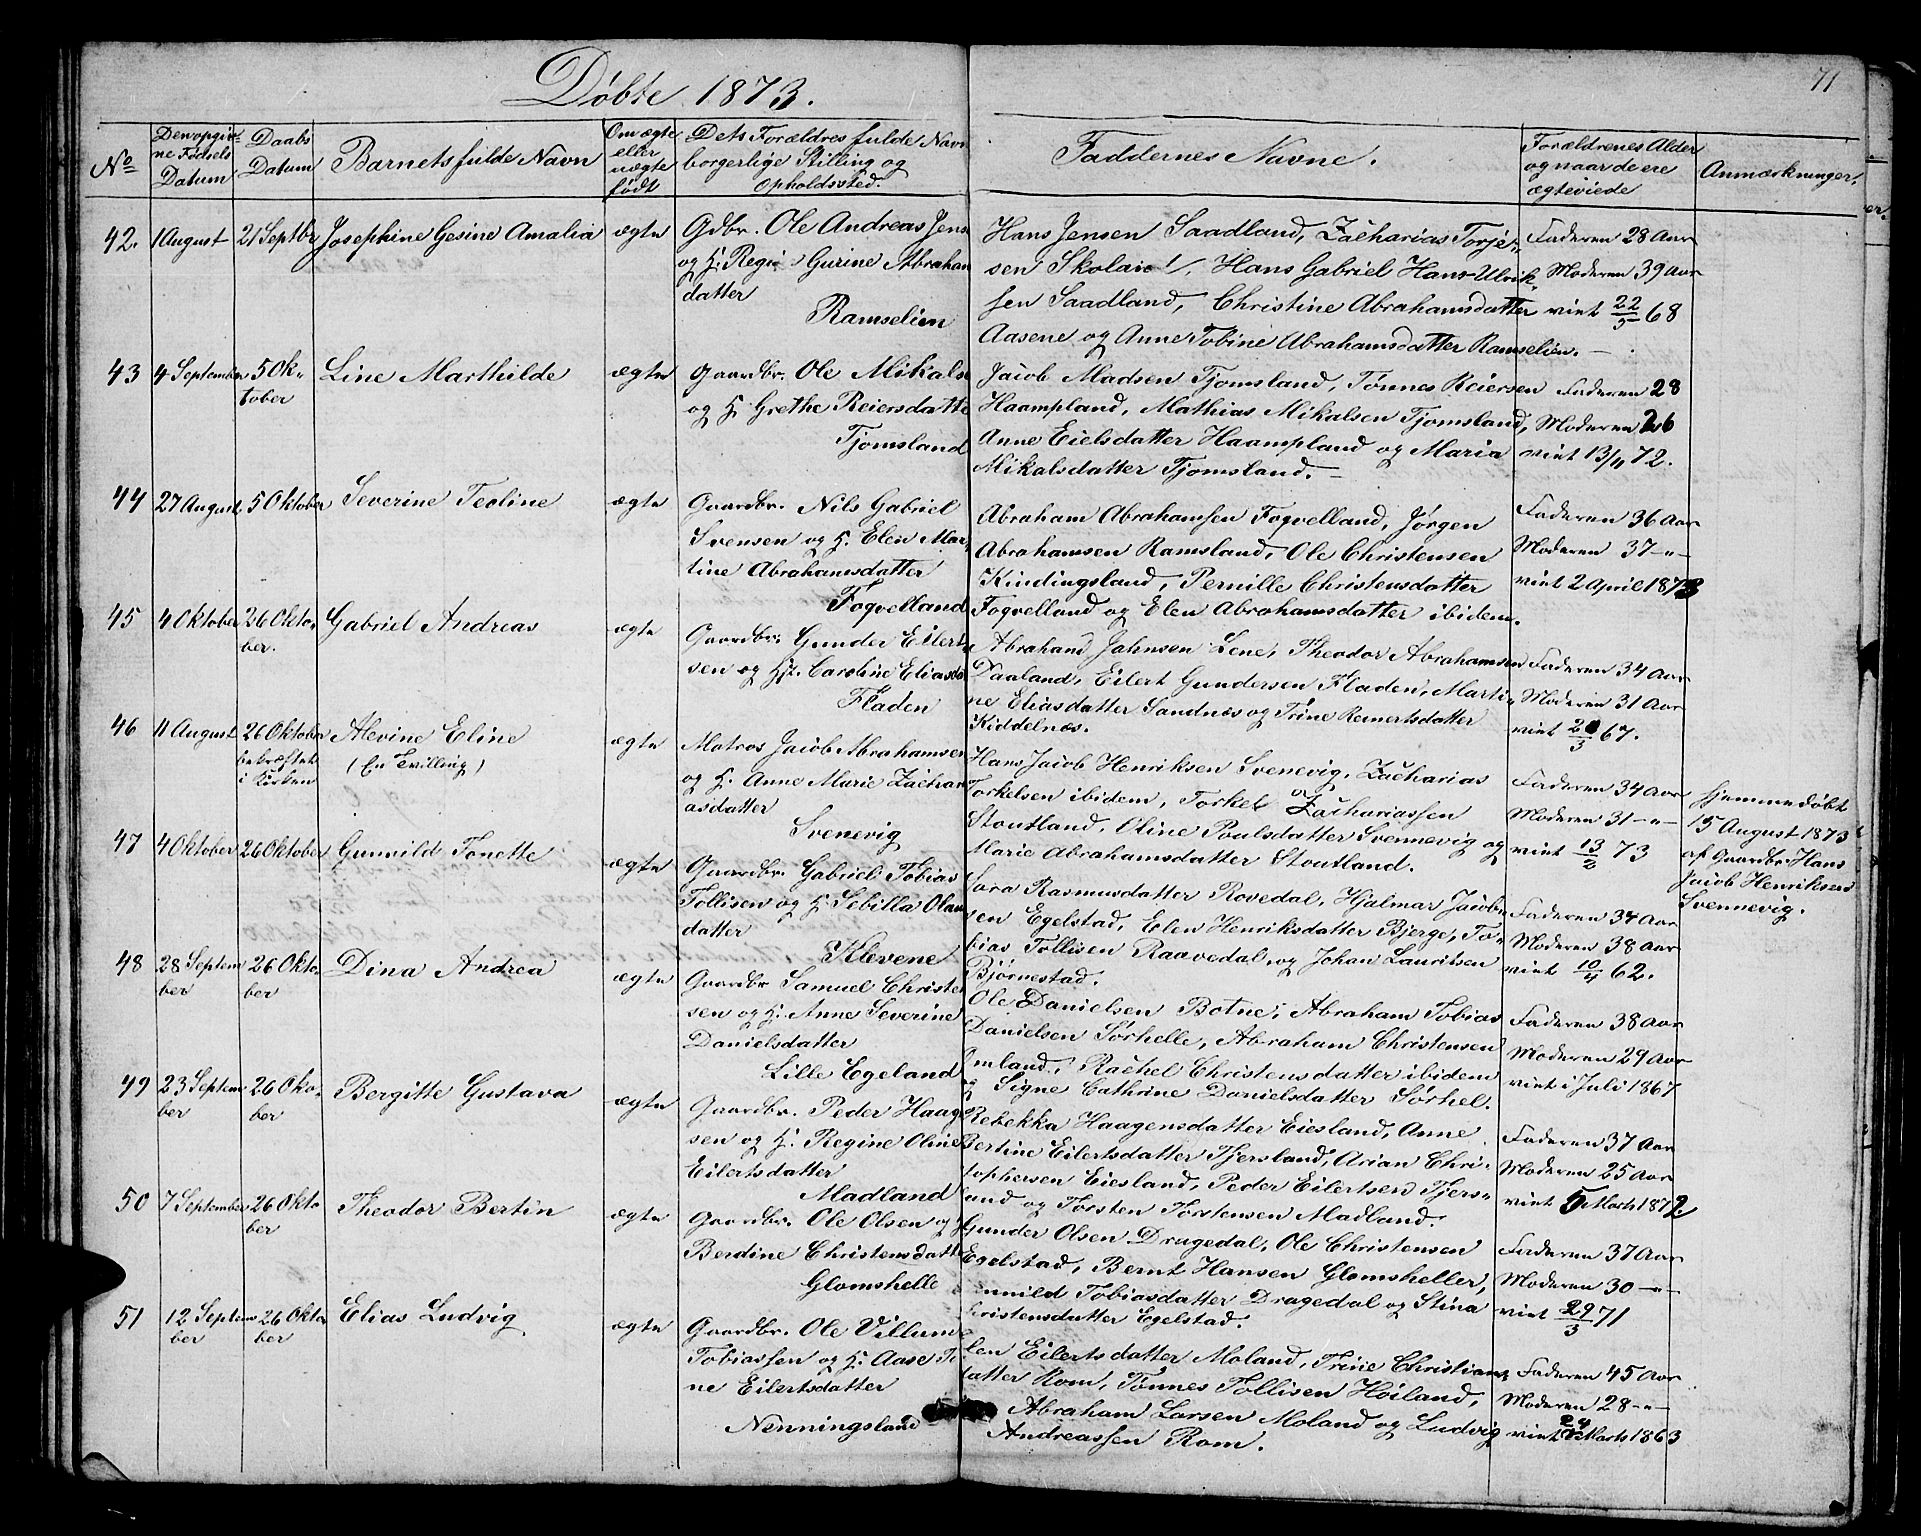 Døbte 1873.
71
No
Den opgiv-
ne Fødsels
Datum
Daabs
Datum
Barnets fulde Navn
Om ægte
eller
uægte
født
Dets Forældres fulde Navn
borgerlige Stilling og
Opholdssted.
Faddernes Navne.
Forældrenes Alder
og naar de ere
ægteviede
Anmærkninger.
42.
1 August
21 Septbr
Josephine Gesine Amalia
ægte
Gdbr. Ole Andreas Jens
og H. Gurine Abraham
datter
Ramselien
Hans Jensen Saadland, Zacharias Torje-
sen Skolaie, Hans Gabriel Hans Ulrik-
sen Saadland, Christine Abrahamsdatter
Aasene og Anne Tobine Abrahamsdatter Ramselien.
Faderen 28 Aar
Moderen 39 Aar
viet 22/5 68
43
4 September
5 Ok-
tober
Line Marthilde
ægte
Gaardbr. Ole Mikals
og H. Grethe Reiersdatte
Tjomsland
Jacob Madsen Tjomsland, Tønnes Reiersen
Haampland, Mathias Mikalsen Tjomsland,
Anne Eielsdatter Haampland og Maria
Mikalsdatter Tjomsland.
Faderen 28
Moderen 26
viet 13/11 72.
44
27 August
5 Oktober
Severine Teoline
ægte
Gaardbr. Nils Gabriel
Svensen og H. Elen Mar-
tine Abrahamsdatter
Foqvelland
Abraham Abrahamsen Foqvelland, Jørgen
Abrahamsen Ramsland, Ole Christensen
Kindingsland, Pernille Christensdatter
Foqvelland og Elen Abrahamsdatter ibidem.
Faderen 36 Aar
Moderen 37 -"-
viet 2 April 1873
45
4 Oktober
26 Okto-
ber.
Gabriel Andreas
ægte
Gaardbr. Gunder Eilert
sen og H. Caroline Eliasda
Fladen
Abraham Johnsen Lene, Theodor Abrahamsen
Daaland, Eilert Gundersen Fladen, Marti-
ne Eliasdatter Sandnæs og Trine Reinertsdatter
Kiddelnæs.
Faderen 34 Aar
Moderen 31 Aar
viet 20/3 67.
46
11 August
26 Oktober
bekræftet
i Kirken
Alevine Eline
(En Tvilling)
ægte
Matros Jacob Abrahamsen
og H. Anne Marie Zachari
asdatter
Svenevig
Hans Jacob Henriksen Svenevig, Zacharias
Torkelsen ibidem, Torkel og Zachariassen
Stoutland, Oline Poulsdatter Svennevig og
Marie Abrahamsdatter Stoutland.
Faderen 34 Aar
Moderen 31 -"-
viet 13/2 73
Hjemmedøbt
15 August 1873
af Gaardbr. Hans
Jacob Henriksen
Svennevig.
47
4 Oktober
26 Oktober
Gunnild Tonette
ægte
Gaardbr. Gabriel Tobias
Tollisen og H. Sebilla Olaus
datter
Klevene
Sara Rasmusdatter Rovedal, Hjalmar Jacob-
sen Egelstad, Elen Henriksdatter Bjerge, To-
bias Tollisen Raavedal, og Johan Lauritsen
Bjørnestad.
Faderen 34 Aar
Moderen 38 Aar
viet 10/4 62.
48
28 Septem
ber
26 Okto
ber
Dina Andrea
ægte
Gaardbr. Samuel Christen
sen og H. Anne Severine
Danielsdatter
Lille Egeland
Ole Danielsen Botne, Abraham Tobias
Danielsen Sørhelle, Abraham Christensen
Omland, Rachel Christensdatter ibidem
og Signe Cathrine Danielsdatter Sørhel.
Faderen 38 Aar
Moderen 29 Aar
viet i Juli 1867
49
23 Septem
ber
26 Okto-
ber
Bergitte Gustava
ægte
Gaardbr. Peder Haag
sen og H. Regine Oline
Eilertsdatter
Madland
Rebekka Haagensdatter Eiesland, Anne
Bertine Eilertsdatter Tjersland, Arian Chri-
stophersen Eiesland, Peder Eilertsen Tjers-
land og Torsten Torstensen Madland.
Faderen 37 Aar
Moderen 25 Aar
viet 5 Marts 1872
50
7 September
26 Okto
ber
Theodor Bertin
ægte
Gaardbr. Ole Olsen og
Berdine Christensdatt
Glomshelle
Gunder Olsen Dragedal, Ole Christensen
Egelstad, Bernt Hansen Glomsheller,
Gunnild Tobiasdatter Dragedal og Stina
Christensdatter Egelstad.
Faderen 37 Aar
Moderen 30 -"-
viet 29/3 71
51
12 Septem
ber
26 Okto
ber
Elias Ludvig
ægte
Gaardbr. Ole Villum
Tobiassen og H. Aase Ti
ne Eilertsdatter
Nenningsland
len Eilertsdatter Moland, Trine Christians
datter Rom, Tønnes Tollisen Høiland,
Abraham Larsen Moland og Ludvig
Andreassen Rom.
Faderen 45 Aar
Moderen 28 -"-
viet 24 Marts 1863